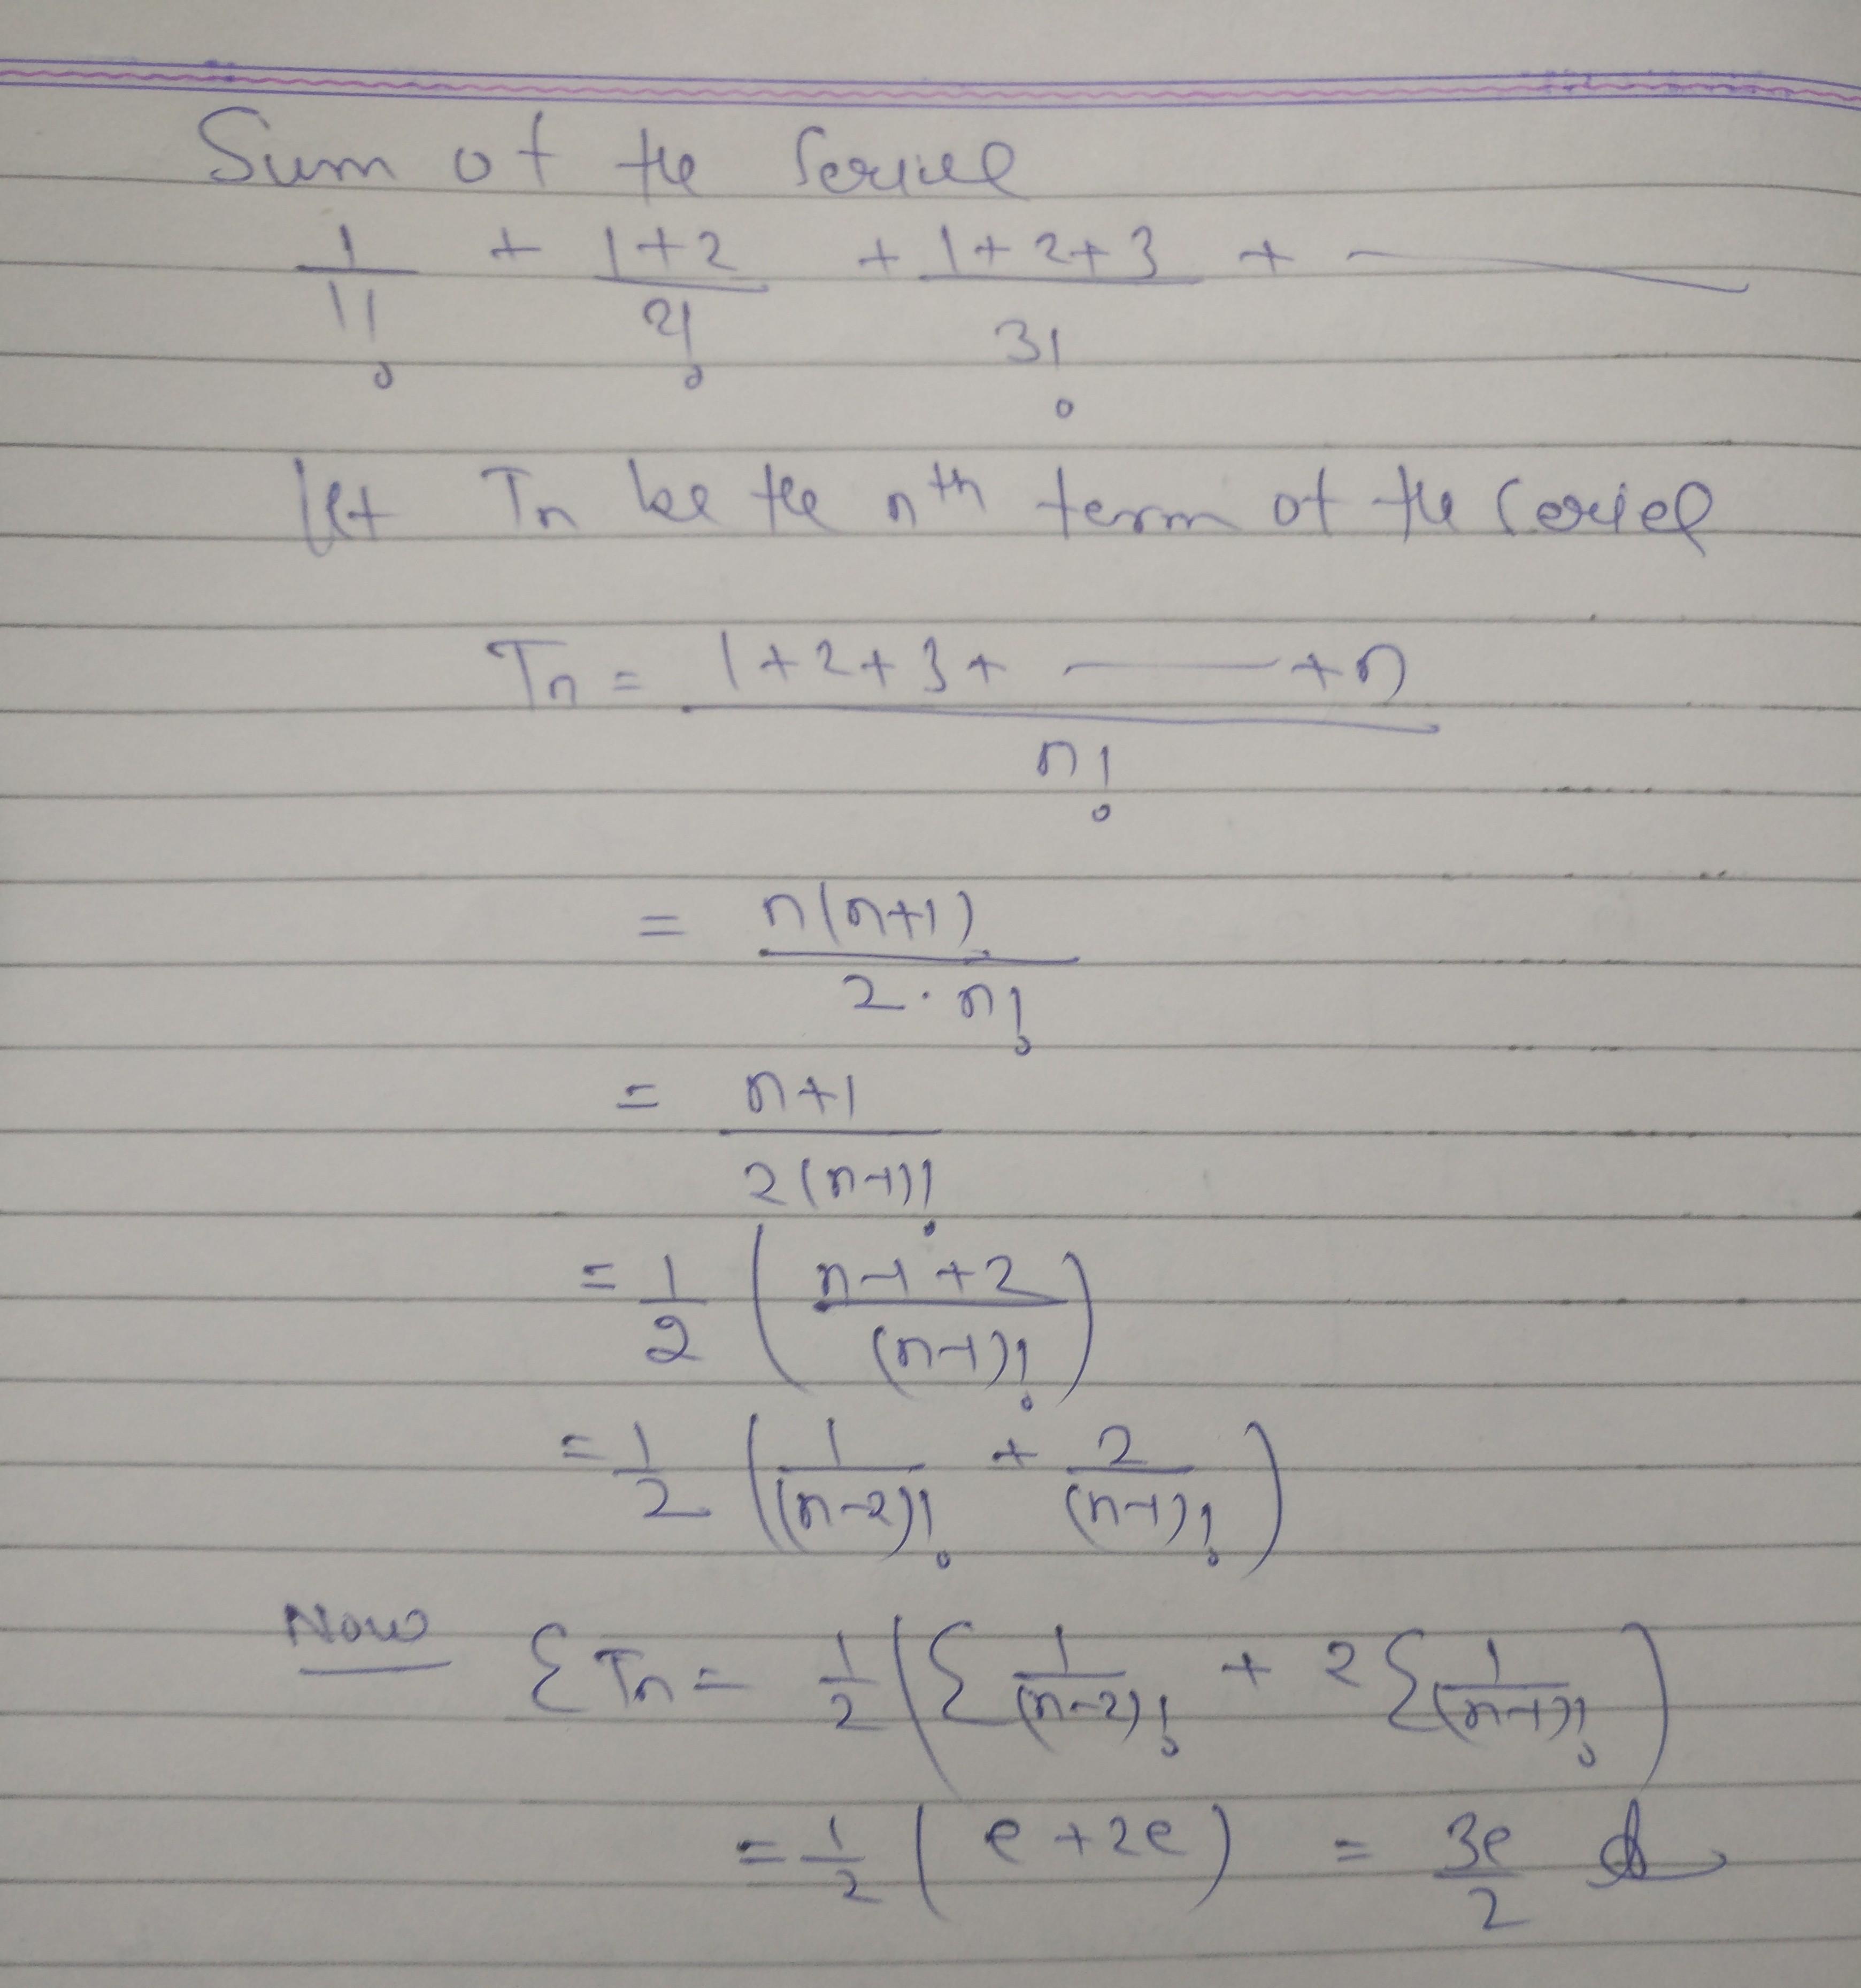 Sum of the series
1/1! + 1+2/2! + 1+2+3/3! + ———
Let Tn be the nth term of the series
Tn = 1+2+3+ —— +n / n!
= n(n+1) / 2·n!
= n+1 / 2(n-1)!
= 1/2 ( n-1+2 / (n-1)! )
= 1/2 ( 1/(n-2)! + 2/(n-1)! )
Now ΣTn = 1/2 ( Σ 1/(n-2)! + 2 Σ 1/(n-1)! )
= 1/2 ( e+2e ) = 3e/2